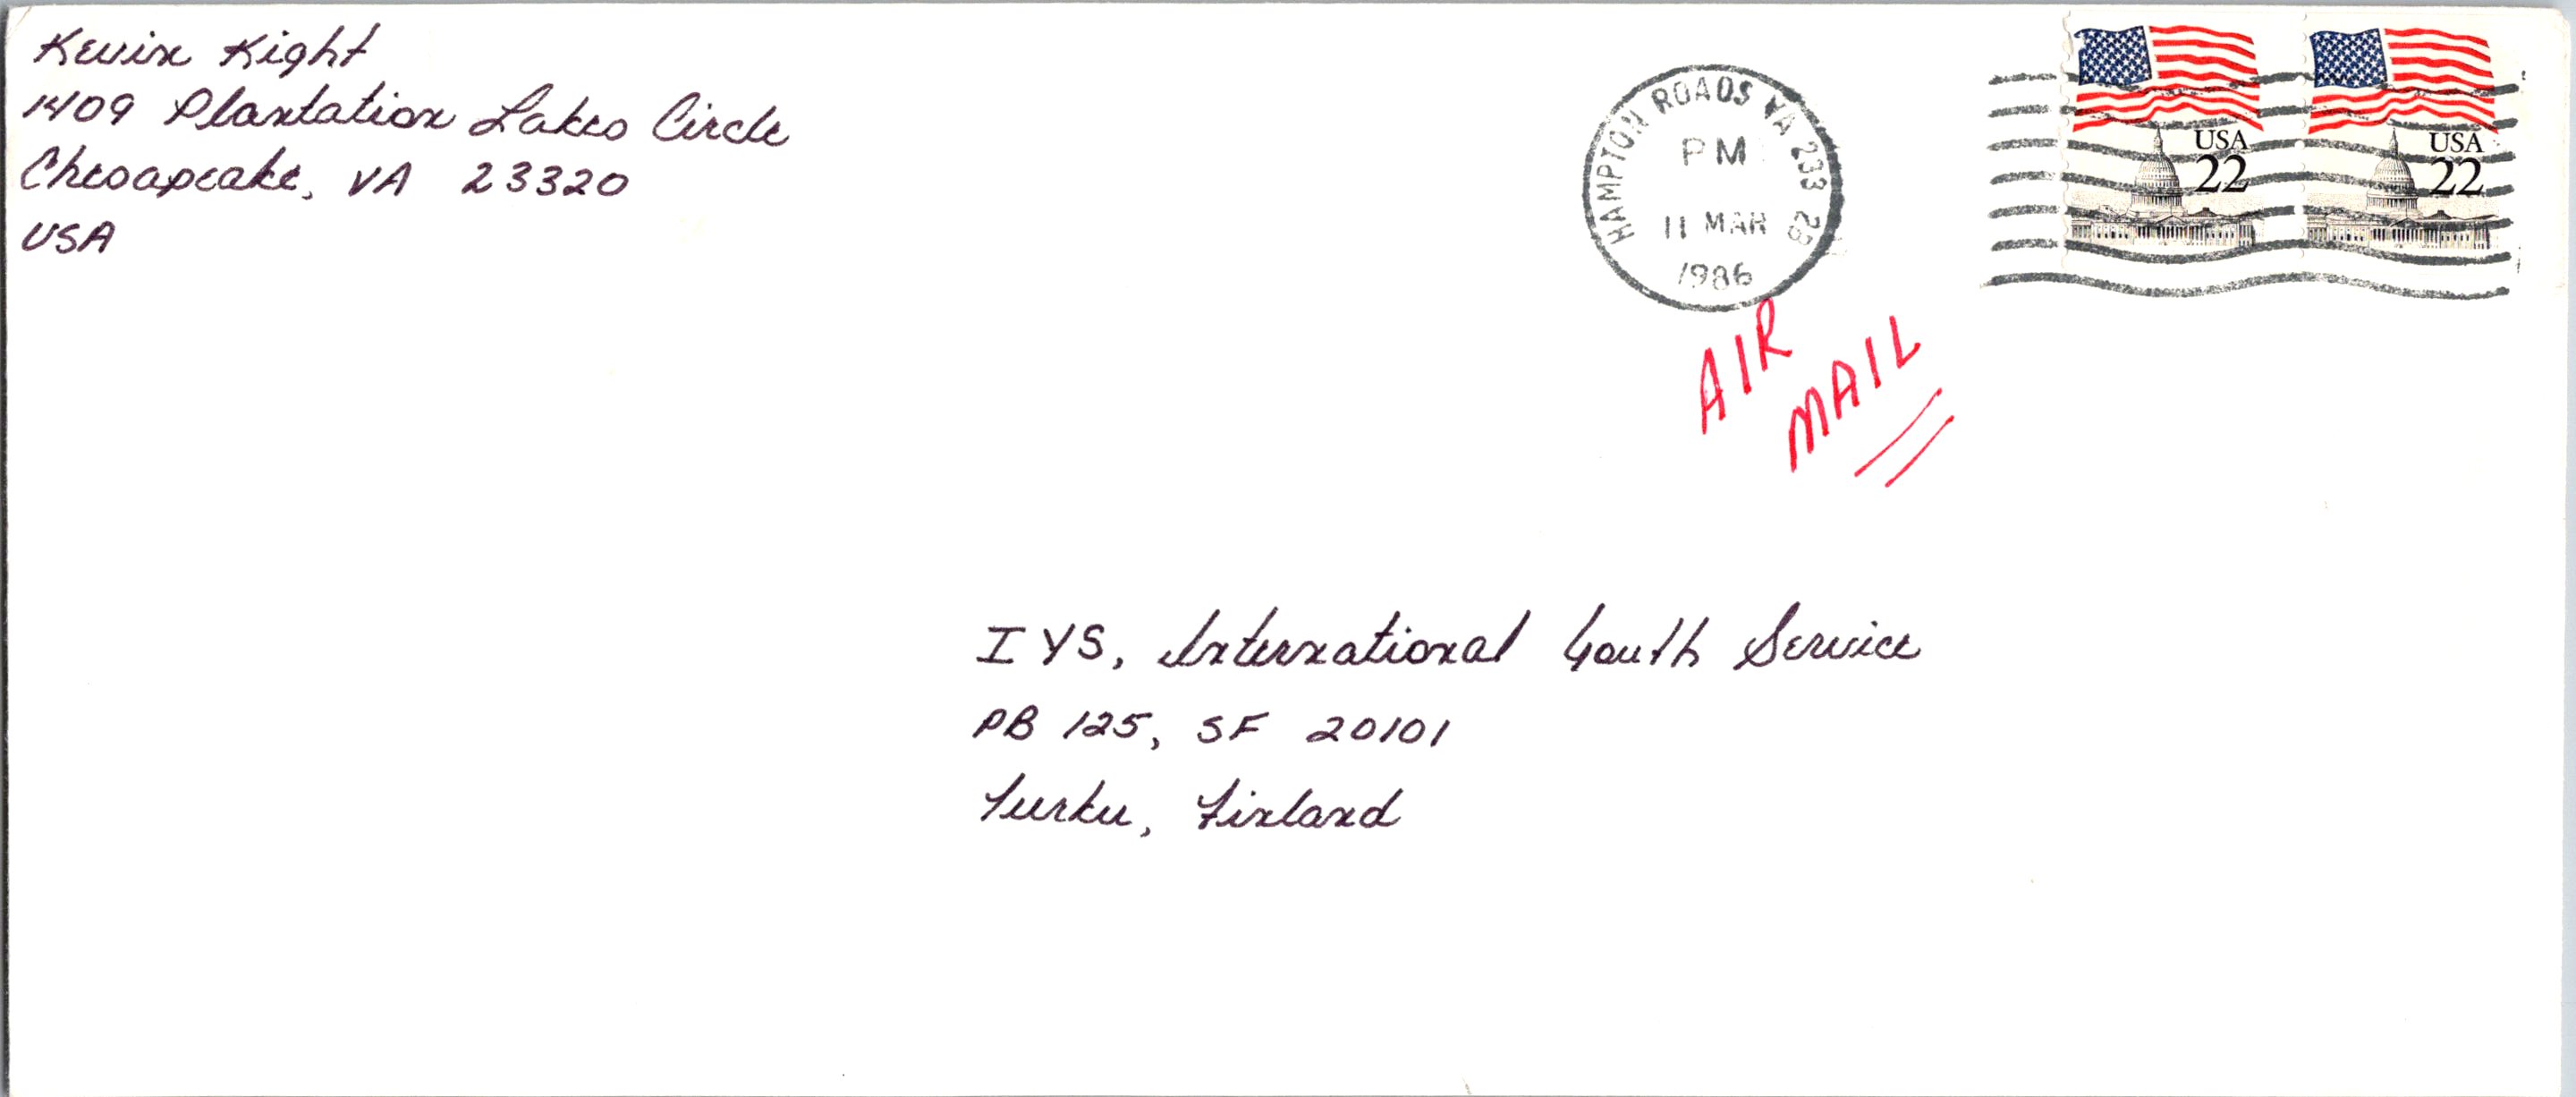 Kevin Kight
1409 Plantation Lakes Circle
Chesapeake, VA 23320
USA
HAMPTON ROADS VA 233 28
PM
11 MAR
1986
USA
22
USA
22
AIR
MAIL
IYS, International Youth Service
PB 125, SF 20101
Turku, Finland